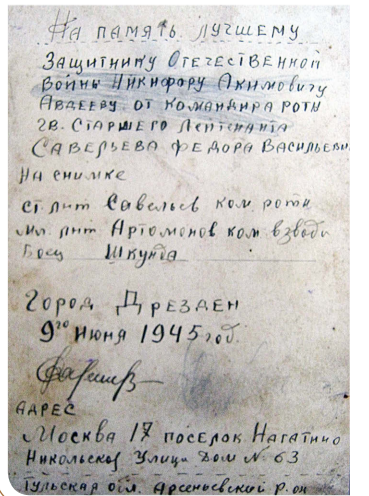 На память лучшему
Защитнику Отечественной
войны Никифору Акимовичу
Авдееву от командира роты
гв. старшего лейтенанта
Савельева Федора Васильеви
На снимке
ст. лит Савельев ком роти
мл. лит Артомонов ком взвода
Боец Шкунда
Город Дрезден
9го июня 1945 год.
адрес
Москва 17 поселок Нагатино
Никольской Улица Дом № 63
Тульская обл. Арсеньевский р-он